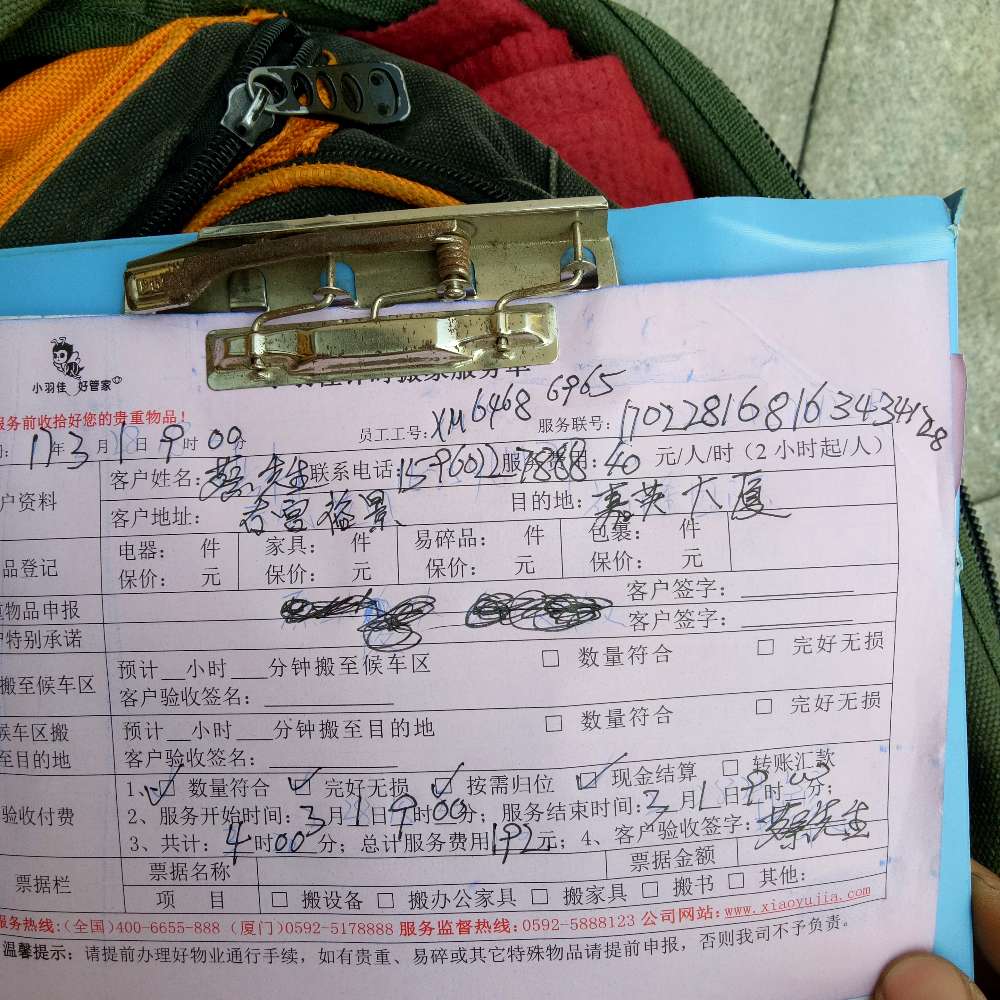 小羽佳 好管家
服务前收拾好您的贵重物品！
员工工号：XM6468 6965 服务联号：1702281681634341728
17年3月1日9时00分
户资料 客户姓名：蔡先生 联系电话：15960227888 服务费用：40 元/人/时（2小时起/人）
客户地址： 目的地：嘉英大厦
品登记 电器： 件 家具： 件 易碎品： 件 包裹： 件
保价： 元 保价： 元 保价： 元 保价： 元
物品申报 客户签字：
特别承诺 客户签字：
搬至候车区 预计__小时___分钟搬至候车区 □ 数量符合 □ 完好无损
客户验收签名：
候车区搬至目的地 预计__小时___分钟搬至目的地 □ 数量符合 □ 完好无损
客户验收签名：
验收付费 1、☑ 数量符合 ☑ 完好无损 ☑ 按需归位 ☑ 现金结算 □ 转账汇款
2、服务开始时间：3月1日9时00分；服务结束时间：3月1日
3、共计：4时00分；总计服务费用192元；4、客户验收签字：蔡先生
票据栏 票据名称 票据金额
项 目 □ 搬设备 □ 搬办公家具 □ 搬家具 □ 搬书 □ 其他：
服务热线:(全国)400-6655-888 (厦门)0592-5178888 服务监督热线:0592-5888123 公司网站:www.xiaoyujia.com
温馨提示：请提前办理好物业通行手续，如有贵重、易碎或其它特殊物品请提前申报，否则我司不予负责。